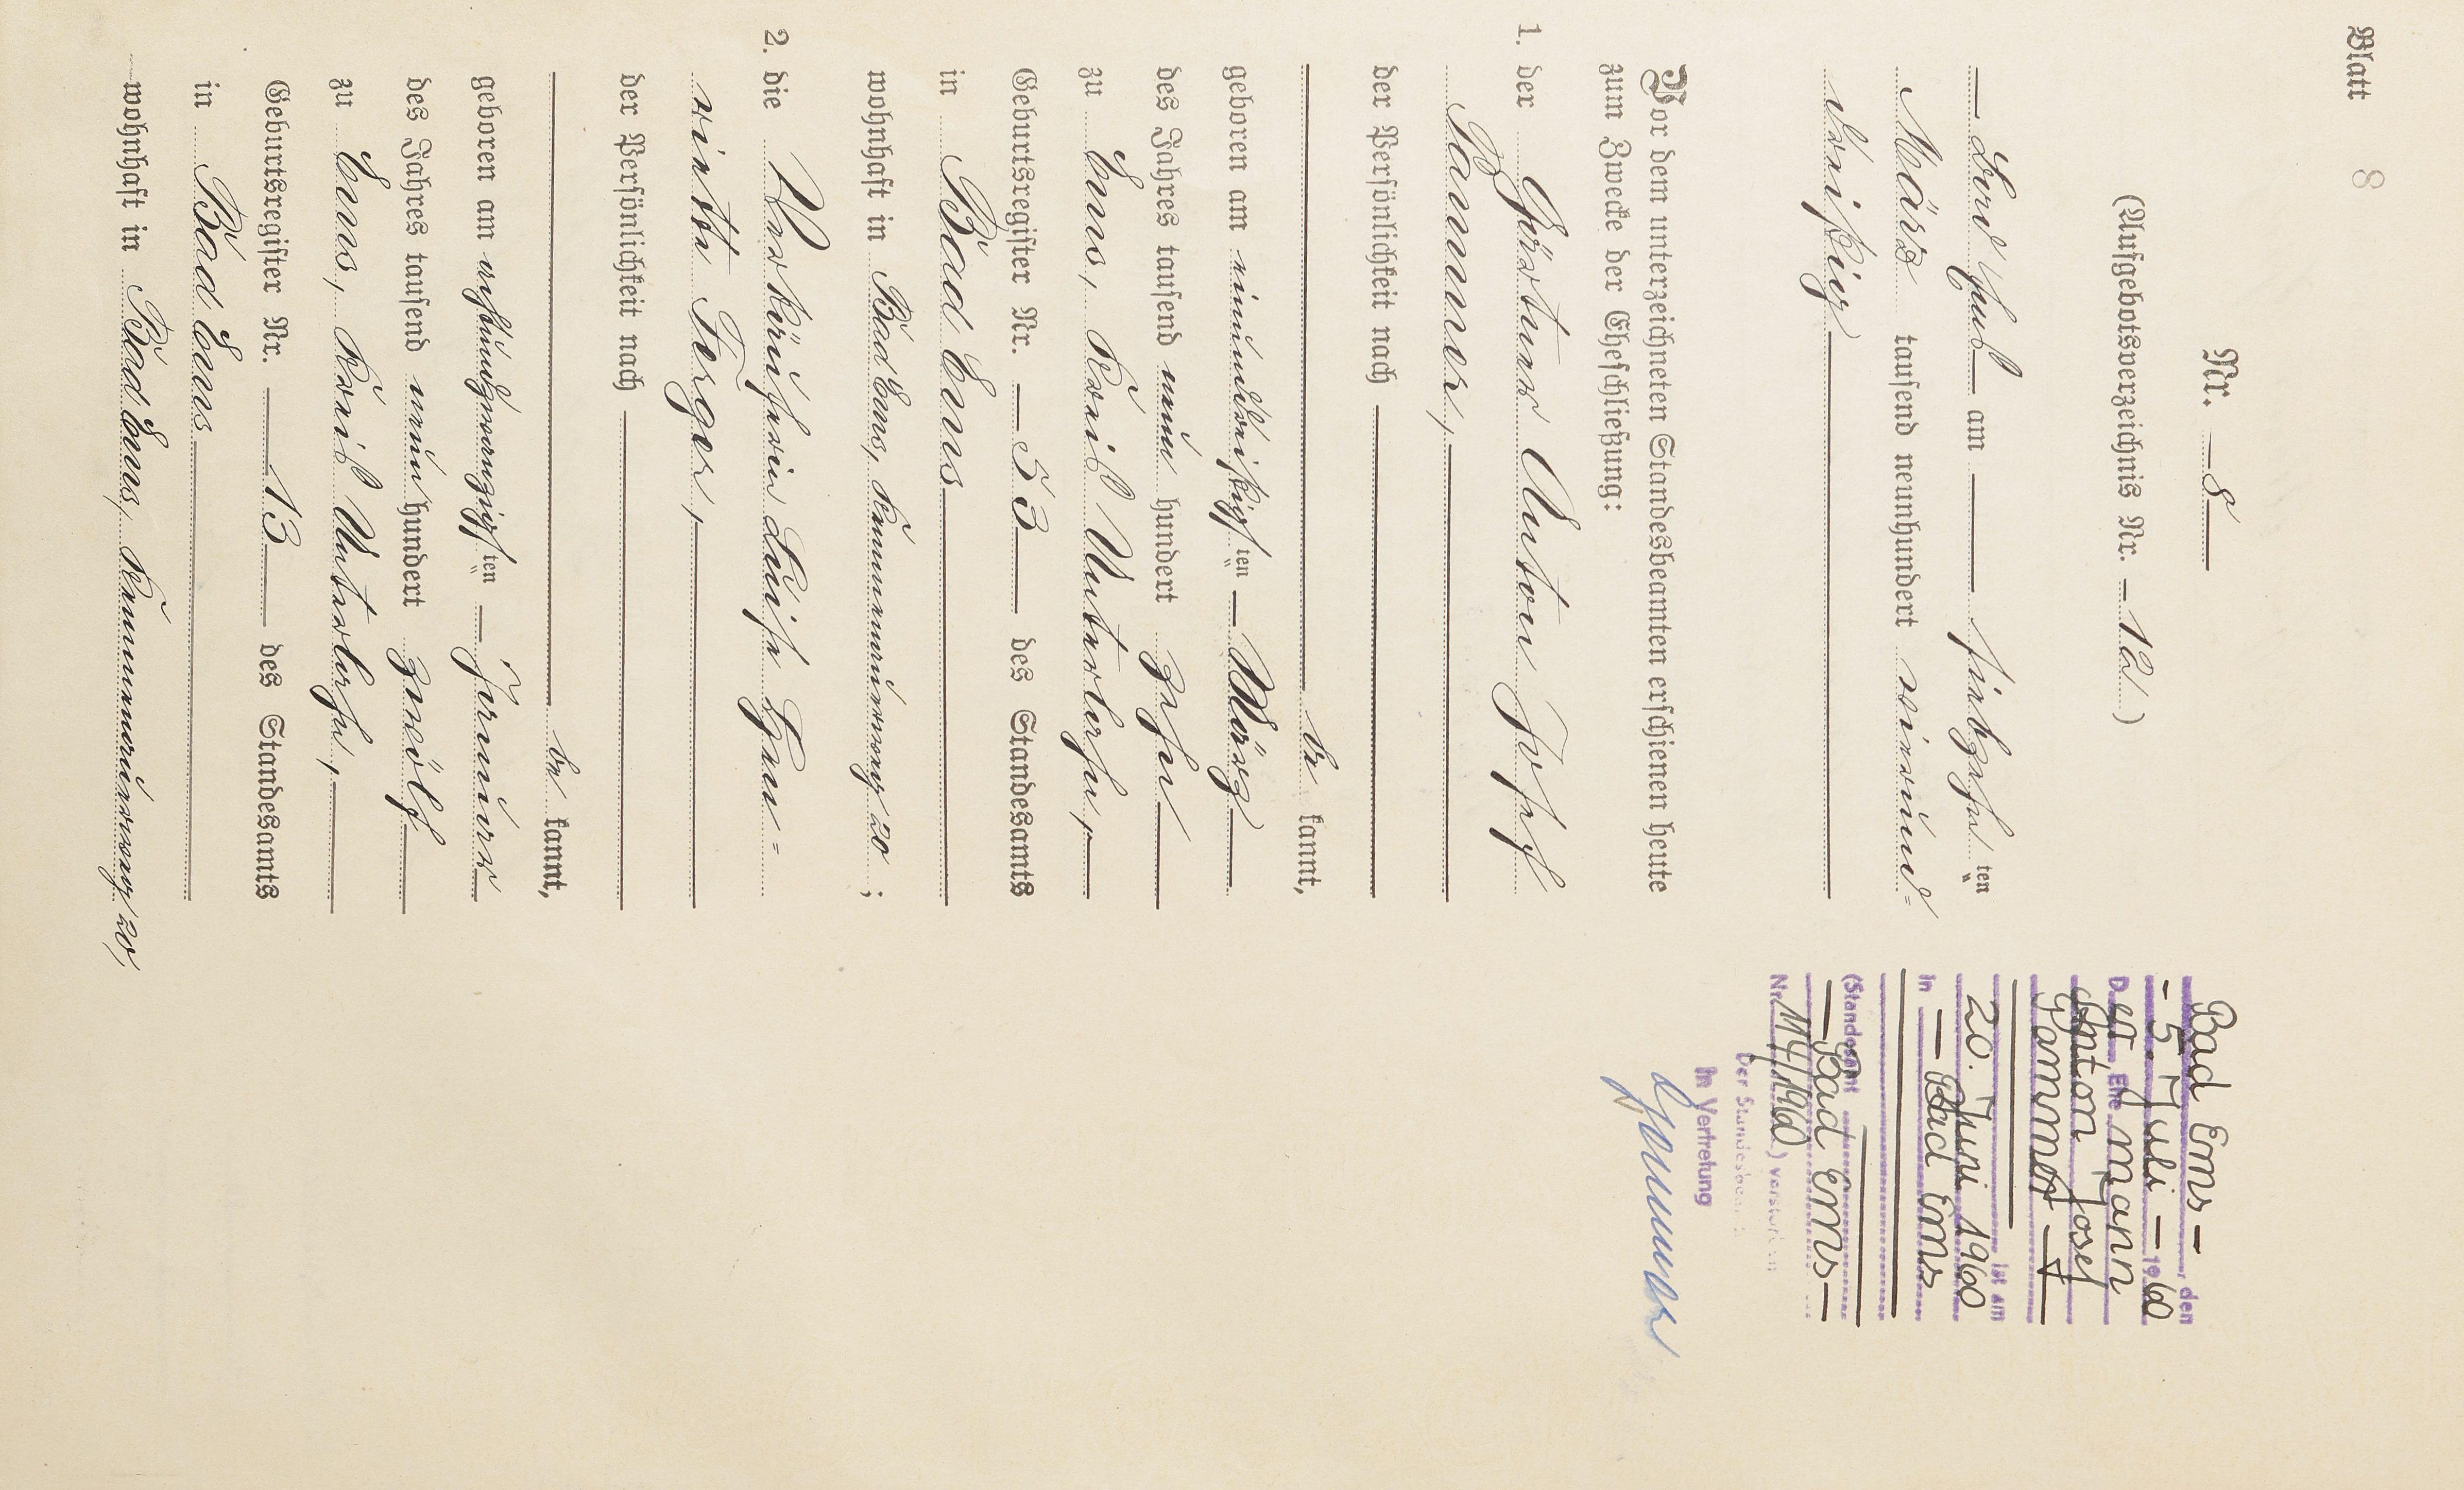 Blatt 8
Nr. 8
(Aufgebotsverzeichnis Nr. 12)
Bad Ems am siebzehnten
März tausend neunhundert vierund=
dreißig
Vor dem unterzeichneten Standesbeamten erschienen heute
zum Zwecke der Eheschließung:
1. der Gärtner Anton Josef
Pammer,
der Persönlichkeit nach
be kannt,
geboren am einunddreißigsten März
des Jahres tausend neun hundert zehn
zu Ems, Kreis Unterlahn,
Geburtsregister Nr. 53 des Standesamts
in Bad Ems
wohnhaft in Bad Ems, 20;
2. die Verkäuferin Luise Hen=
riette Ferger,
der Persönlichkeit nach
be kannt,
geboren am achtundzwanzigsten Januar
des Jahres tausend neun hundert zwölf
zu Ems, Kreis Unterlahn,
Geburtsregister Nr. 13 des Standesamts
in Bad Ems
wohnhaft in Bad Ems, 20,
Bad Ems, den
5. Juli 1960
Der Ehe mann
Anton Josef
Pammer
ist am
20. Juni 1960
in Bad Ems
(Standesamt
Bad Ems
Nr. 114/1960) verstorben
Der Standesbeamte
In Vertretung